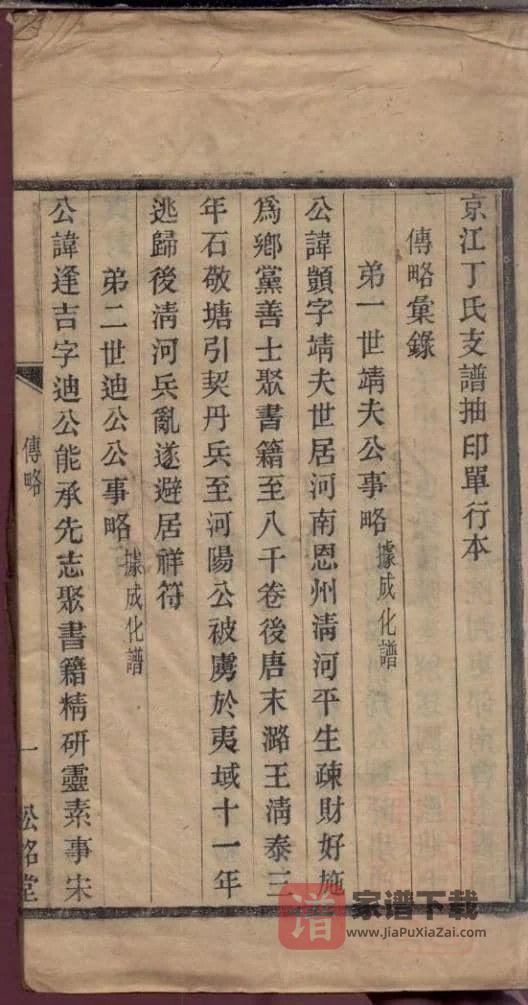 京江丁氏支譜抽印單行本
傳略彙錄
弟一世靖夫公事略 據成化譜
公諱顗字靖夫世居河南恩州清河平生疎財好施
爲鄉黨善士聚書籍至八千卷後唐末潞王清泰三
年石敬塘引契丹兵至河陽公被虜於夷域十一年
逃歸後清河兵亂遂避居祥符
弟二世迪公公事略 據成化譜
公諱逢吉字迪公能承先志聚書籍精研靈素事宋
傳略
一
松銘堂
谱
家谱下载
www.JiaPuXiaZai.com